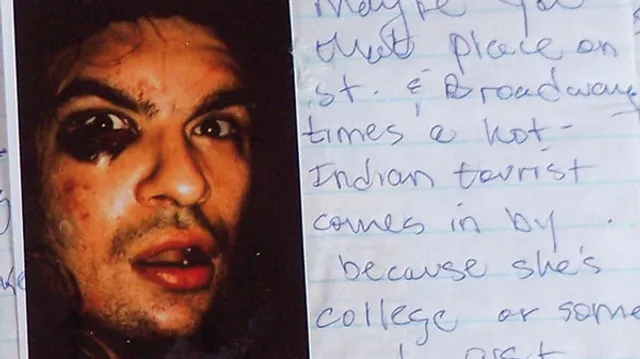 Maybe you
that place on
st. & Broadway
times a hot-
Indian tourist
comes in by
because she's
college or some